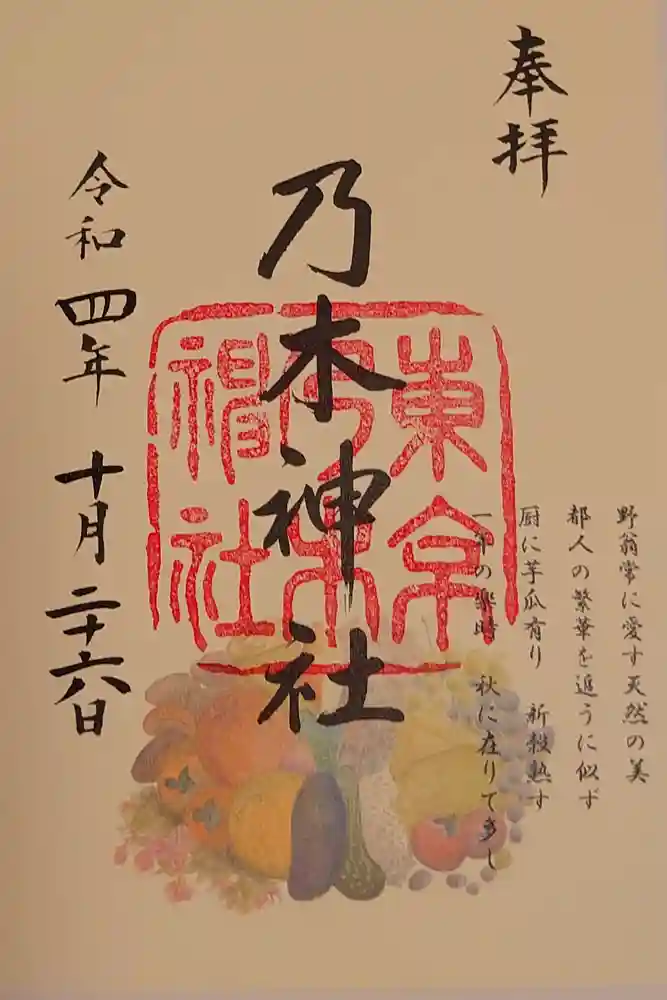 奉拝
野翁常に愛す天然の美
都人の繁華を追うに似ず
厨に芋瓜有り 新穀熟す
一年の楽時 秋に在りて多し
乃木神社
東京
乃木
神社
令和四年 十月二十六日